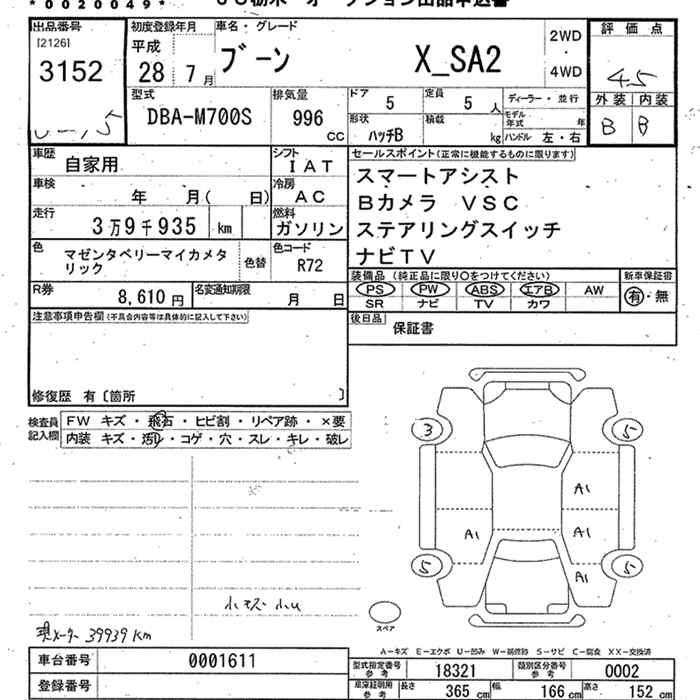 * 0020049 *
出品番号 初度登録年月 車名・グレード 評価点
[2126]
3152
平成
28年 7月
ブーン X_SA2
2WD
・
4WD
4.5
外装 内装
B B
型式 排気量 ドア 定員 ディーラー・並行
DBA-M700S 996 cc 5 5人
形状 積載 モデル年式 年
ハッチB kg ハンドル 左・右
車歴 自家用 シフト IAT
セールスポイント(正常に機能するものに限ります)
車検 年 月( 日) 冷房 AC
走行 3万9千935 km 燃料 ガソリン
スマートアシスト
Bカメラ VSC
ステアリングスイッチ
ナビTV
色 マゼンタベリーマイカメタリック 色替 色コード R72
装備品 (純正品に限り○をつけてください) 新車保証書
PS PW ABS エアB AW 有・無
SR ナビ TV カワ
R券 8,610円 名変通知期限 月 日
注意事項申告欄(不具合内容等は具体的に記入して下さい)
後日品 保証書
修復歴 有〔箇所 〕
検査員記入欄
FW キズ・飛石・ヒビ割・リペア跡・×要
内装 キズ・汚レ・コゲ・穴・スレ・キレ・破レ
3 5
A1
A1 A1
5 A1 5
小キズ・小U
スペア
現メーター 39939Km
A-キズ E-エクボ U-凹み W-補修跡 S-サビ C-腐食 XX-交換済
車台番号 0001611
型式指定番号 参考 18321 類別区分番号 参考 0002
登録番号
車庫証明用 参考 長さ 365 cm 幅 166 cm 高さ 152 cm